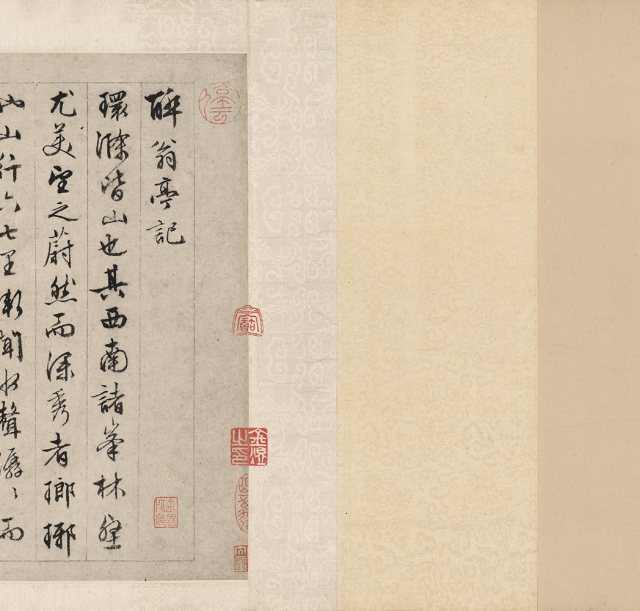 醉翁亭記
環滁皆山也其西南諸峯林壑
尤美望之蔚然而深秀者瑯琊
也山行六七里漸聞水聲潺〻而